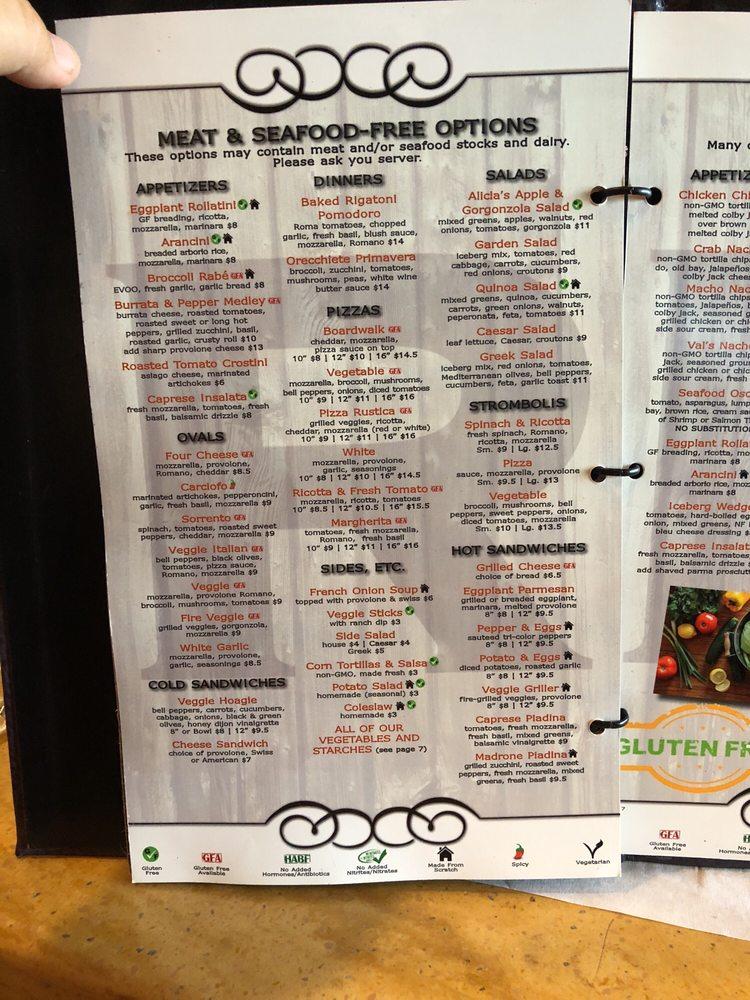 MEAT & SEAFOOD-FREE OPTIONS
These options may contain meat and/or seafood stocks and dairy.
Please ask you server.
APPETIZERS
Eggplant Rollatini
GF breading, ricotta,
mozzarella, marinara $8
Arancini
breaded arborio rice,
mozzarella, marinara $8
Broccoli Rabé GFA
EVOO, fresh garlic, garlic bread $8
Burrata & Pepper Medley GFA
burrata cheese, roasted tomatoes,
roasted sweet or long hot
peppers, grilled zucchini, basil,
roasted garlic, crusty roll $10
add sharp provolone cheese $13
Roasted Tomato Crostini
asiago cheese, marinated
artichokes $6
Caprese Insalata
fresh mozzarella, tomatoes, fresh
basil, balsamic drizzle $8
OVALS
Four Cheese GFA
mozzarella, provolone,
Romano, cheddar $8.5
Carciofo
marinated artichokes, pepperoncini,
garlic, fresh basil, mozzarella $9
Sorrento GFA
spinach, tomatoes, roasted sweet
peppers, cheddar, mozzarella $9
Veggie Italian GFA
bell peppers, black olives,
tomatoes, pizza sauce,
Romano, mozzarella $9
Veggie GFA
mozzarella, provolone Romano,
broccoli, mushrooms, tomatoes $9
Fire Veggie GFA
grilled veggies, gorgonzola,
mozzarella $9
White Garlic
mozzarella, provolone,
garlic, seasonings $8.5
COLD SANDWICHES
Veggie Hoagie
bell peppers, carrots, cucumbers,
cabbage, onions, black & green
olives, honey dijon vinaigrette
8" or Bowl $8 | 12" $9.5
Cheese Sandwich
choice of provolone, Swiss
or American $7
DINNERS
Baked Rigatoni
Pomodoro
Roma tomatoes, chopped
garlic, fresh basil, blush sauce,
mozzarella, Romano $14
Orecchiete Primavera
broccoli, zucchini, tomatoes,
mushrooms, peas, white wine
butter sauce $14
PIZZAS
Boardwalk GFA
cheddar, mozzarella,
pizza sauce on top
10" $8 | 12" $10 | 16" $14.5
Vegetable GFA
mozzarella, broccoli, mushrooms,
bell peppers, onions, diced tomatoes
10" $9 | 12" $11 | 16" $16
Pizza Rustica GFA
grilled veggies, ricotta,
cheddar, mozzarella (red or white)
10" $9 | 12" $11 | 16" $16
White
mozzarella, provolone,
garlic, seasonings
10" $8 | 12" $10 | 16" $14.5
Ricotta & Fresh Tomato GFA
mozzarella, ricotta, tomatoes
10" $8.5 | 12" $10.5 | 16" $15.5
Margherita GFA
tomatoes, fresh mozzarella,
Romano, fresh basil
10" $9 | 12" $11 | 16" $16
SIDES, ETC.
French Onion Soup
topped with provolone & swiss $6
Veggie Sticks
with ranch dip $3
Side Salad
house $4 | Caesar $4
Greek $5
Corn Tortillas & Salsa
non-GMO, made fresh $3
Potato Salad
homemade (seasonal) $3
Coleslaw
homemade $3
ALL OF OUR
VEGETABLES AND
STARCHES (see page 7)
SALADS
Alicia's Apple &
Gorgonzola Salad
mixed greens, apples, walnuts, red
onions, tomatoes, gorgonzola $11
Garden Salad
iceberg mix, tomatoes, red
cabbage, carrots, cucumbers,
red onions, croutons $9
Quinoa Salad
mixed greens, quinoa, cucumbers,
carrots, green onions, walnuts,
peperonata, feta, tomatoes $11
Caesar Salad
leaf lettuce, Caesar, croutons $9
Greek Salad
iceberg mix, red onions, tomatoes,
Mediterranean olives, bell peppers,
cucumbers, feta, garlic toast $11
STROMBOLIS
Spinach & Ricotta
fresh spinach, Romano,
ricotta, mozzarella
Sm. $9 | Lg. $12.5
Pizza
sauce, mozzarella, provolone
Sm. $9.5 | Lg. $13
Vegetable
broccoli, mushrooms, bell
peppers, sweet peppers, onions,
diced tomatoes, mozzarella
Sm. $10 | Lg. $13.5
HOT SANDWICHES
Grilled Cheese GFA
choice of bread $6.5
Eggplant Parmesan
grilled or breaded eggplant,
marinara, melted provolone
8" $8 | 12" $9.5
Pepper & Eggs
sauteed tri-color peppers
8" $8 | 12" $9.5
Potato & Eggs
diced potatoes, roasted garlic
8" $8 | 12" $9.5
Veggie Griller
fire-grilled veggies, provolone
8" $8 | 12" $9.5
Caprese Piadina
tomatoes, fresh mozzarella,
fresh basil, mixed greens,
balsamic vinaigrette $9
Madrone Piadina
grilled zucchini, roasted sweet
peppers, fresh mozzarella, mixed
greens, fresh basil $9.5
Gluten
Free
GFA
Gluten Free
Available
HABF
No Added
Hormones/Antibiotics
No Added
Nitrites/Nitrates
Made From
Scratch
Spicy
Vegetarian
7
Many
APPETIZ
Chicken Chi
non-GMO tortill
melted colby j
over brown
melted colby
Crab Nac
non-GMO tortilla chips
do, old bay, jalapeños
colby jack chees
Macho Nac
non-GMO tortilla chips
tomatoes, jalapeños, b
colby jack, seasoned gro
grilled chicken or chic
side sour cream, fresh
Val's Nacho
non-GMO tortilla chips
jack, seasoned groun
grilled chicken or chic
side sour cream, fresh
Seafood Osc
tomato, asparagus, lump
bay, brown rice, cream sau
of Shrimp or Salmon T
NO SUBSTITUTION
Eggplant Rolla
GF breading, ricotta, mo
marinara $8
Arancini
breaded arborio rice, moz
marinara $8
Iceberg Wedge
tomatoes, hard-boiled eg
onion, mixed greens, NF
bleu cheese dressing
Caprese Insalat
fresh mozzarella, tomatoes
basil, balsamic drizzle
add shaved parma prosciutt
GLUTEN FR
GFA
Gluten Free
Available
H
No A
Hormones/